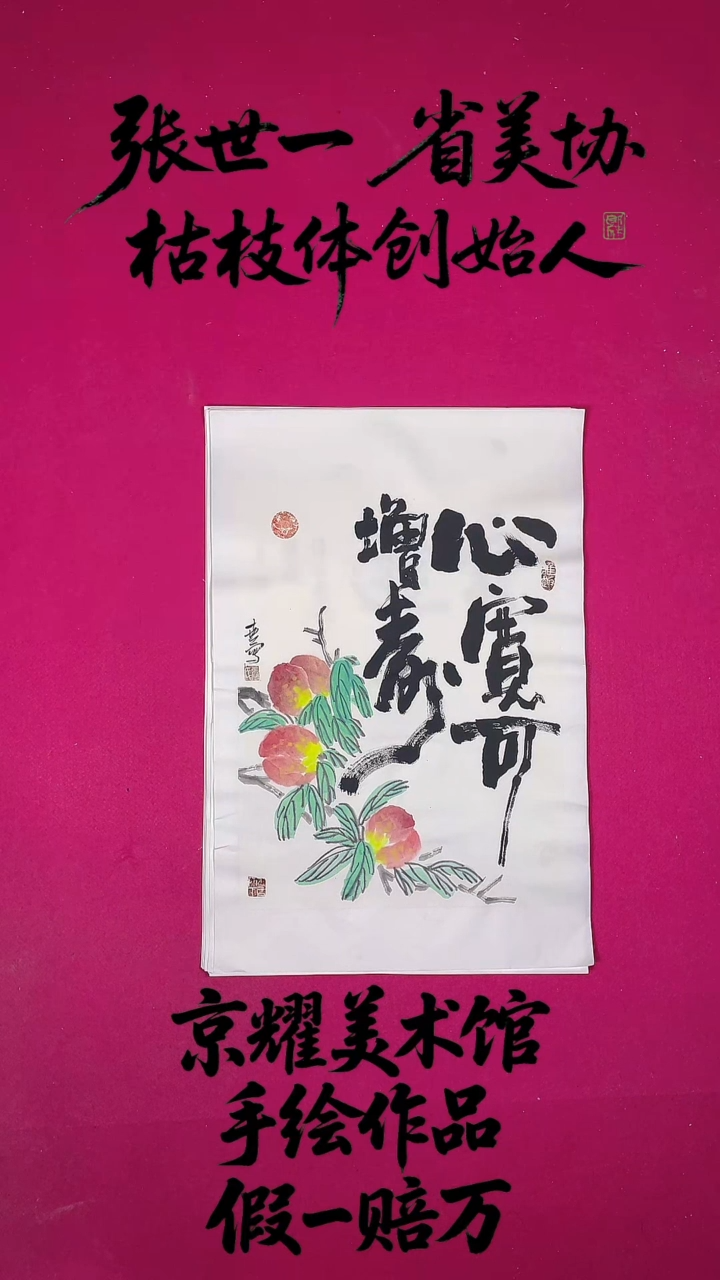 张世一 省美协
枯枝体创始人
心宽可
增寿
京耀美术馆
手绘作品
假一赔万